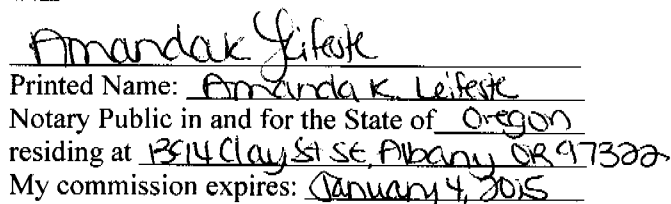 Amanda K Leifeste
Printed Name: Amanda K. Leifeste
Notary Public in and for the State of Oregon
residing at Clay St SE, Albany OR 97322
My commission expires: January 4, 2015